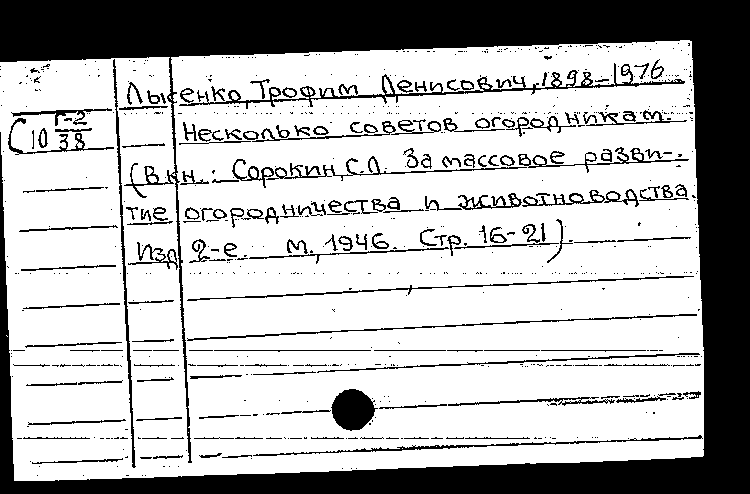 Лысенко, Трофим Денисович, 1898-1976.
С10 Г-2/38
Несколько советов огородникам.
(В кн.: Сорокин, С.Л. За массовое разви-
тие огородничества и животноводства.
Изд. 2-е. М., 1946. Стр. 16-21).